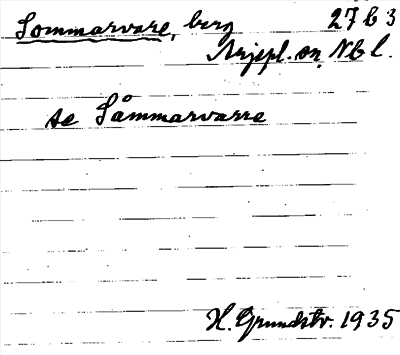 Sommarvare, berg 27 b 3
Arjepl. sn, Nb l.
se Såmmarvarre
H. Grundstr. 1935